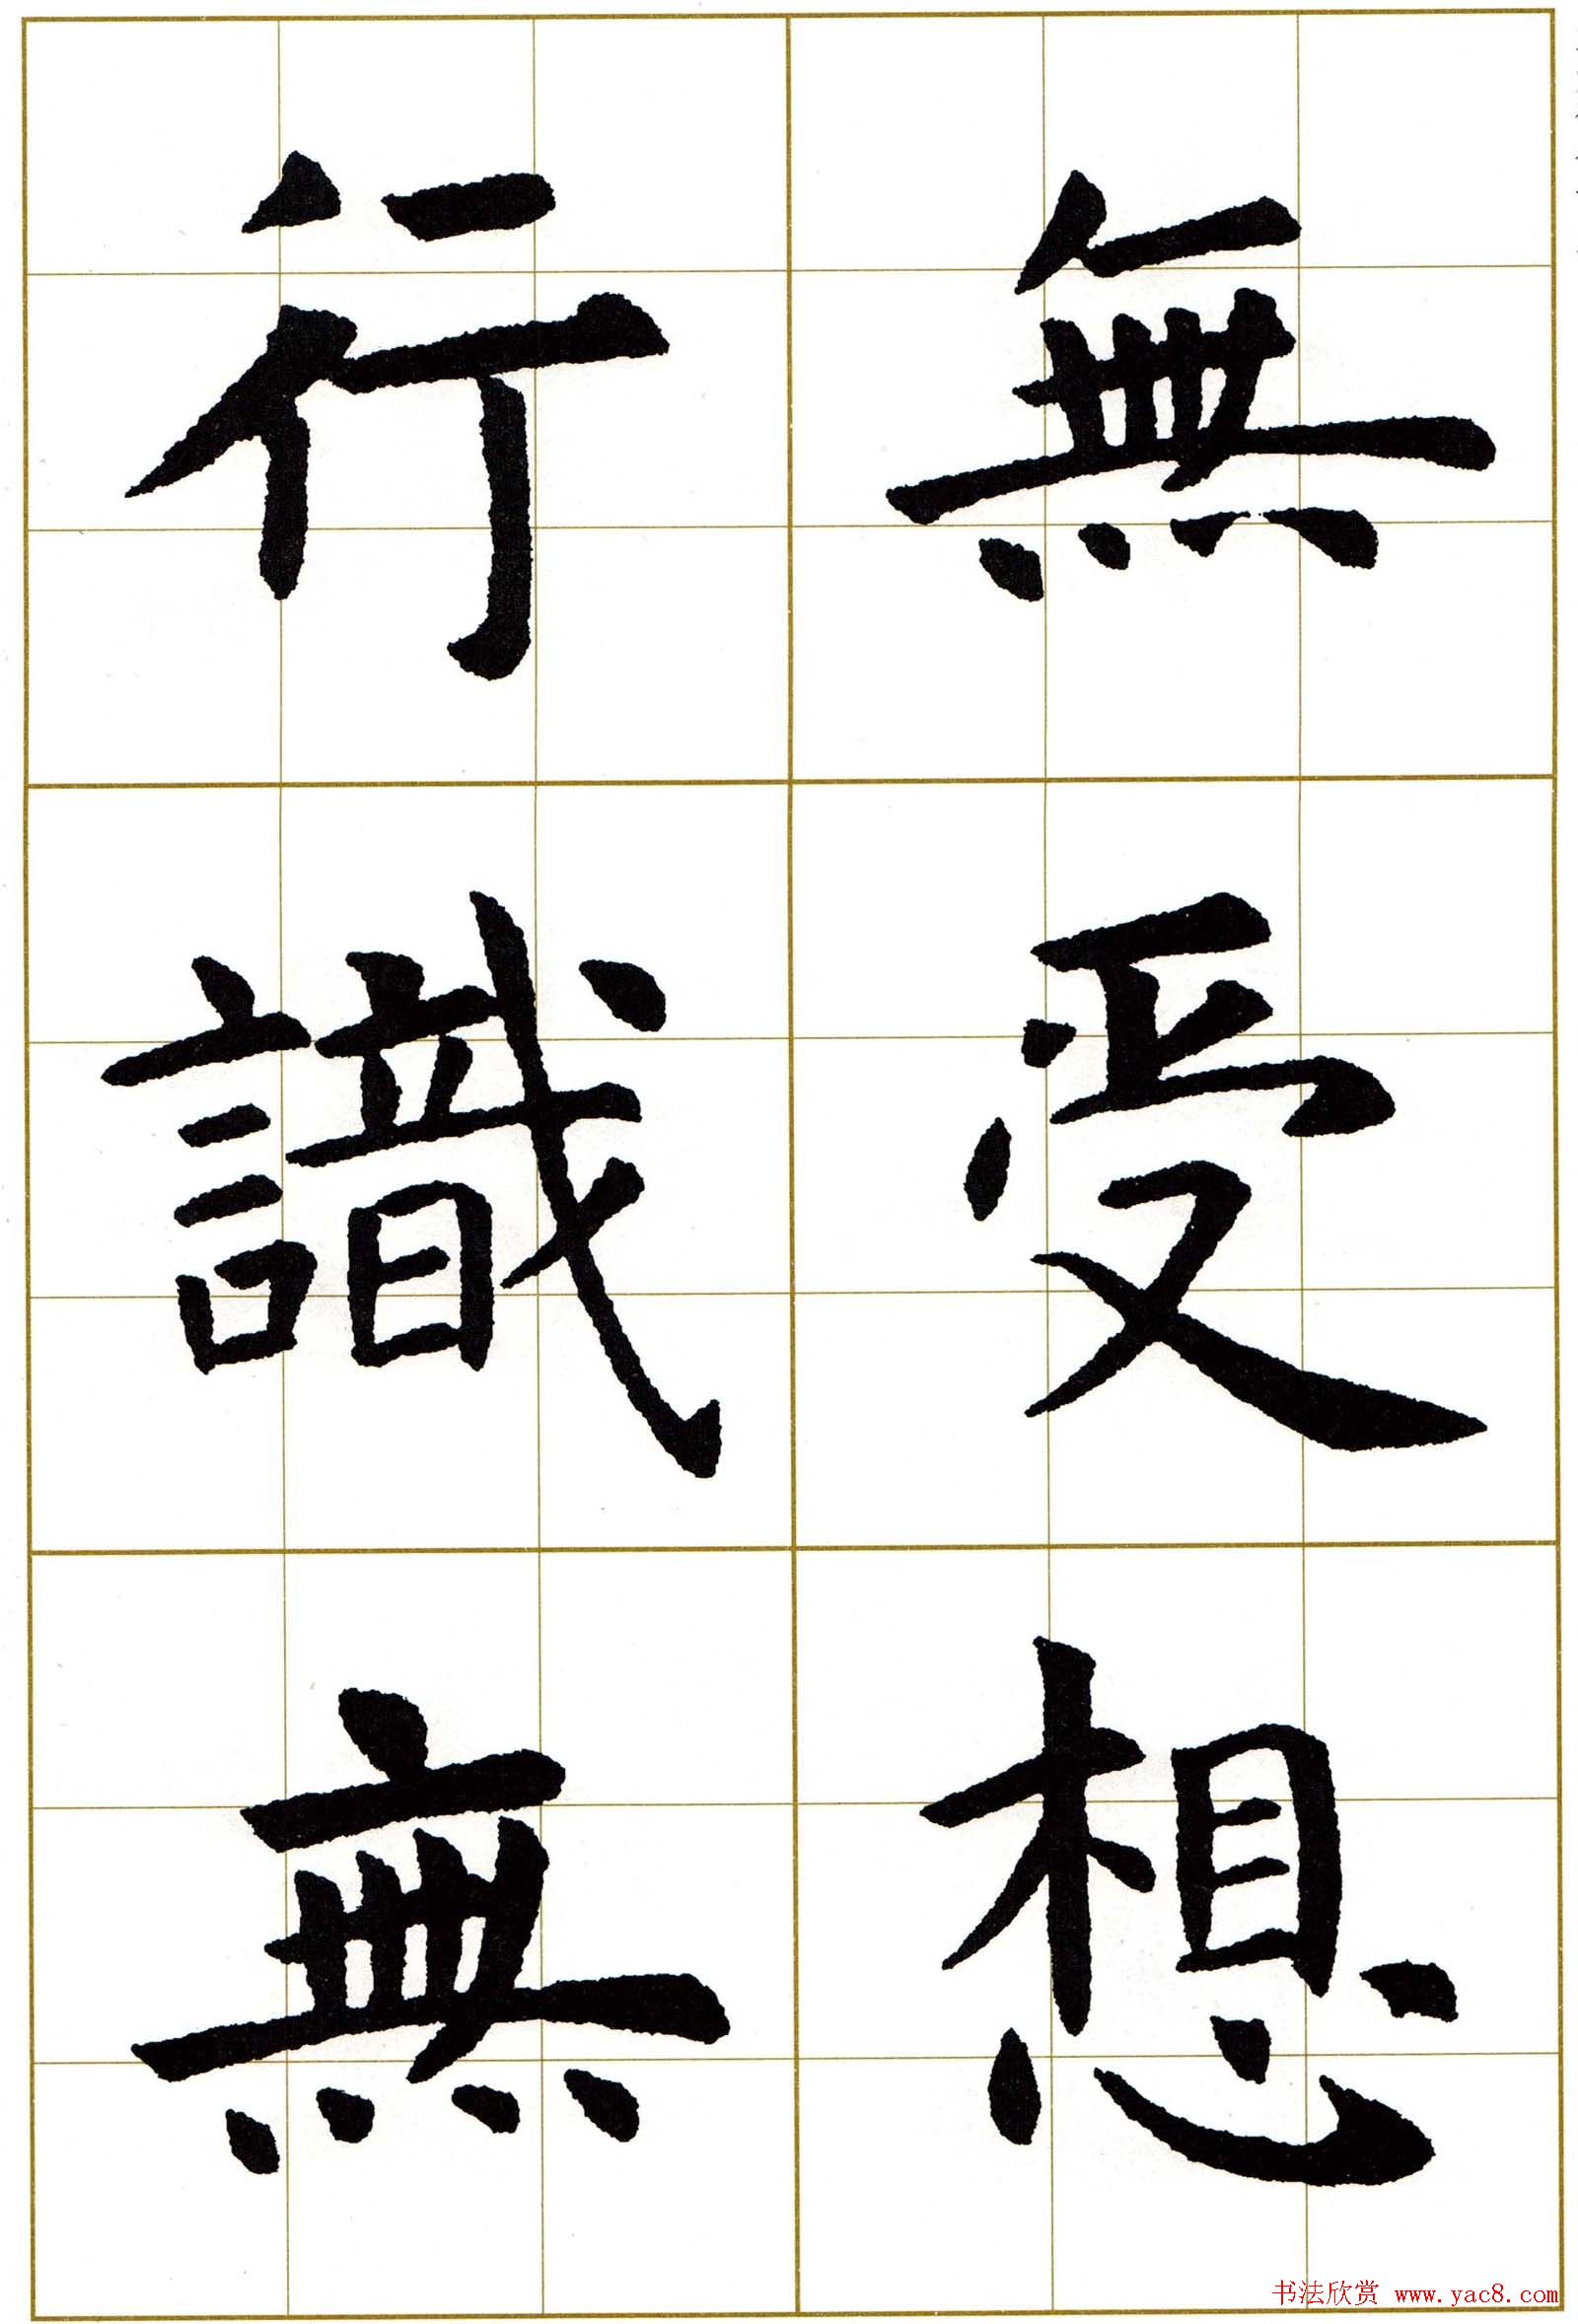 無受想
行識無
书法欣赏 www.yac8.com